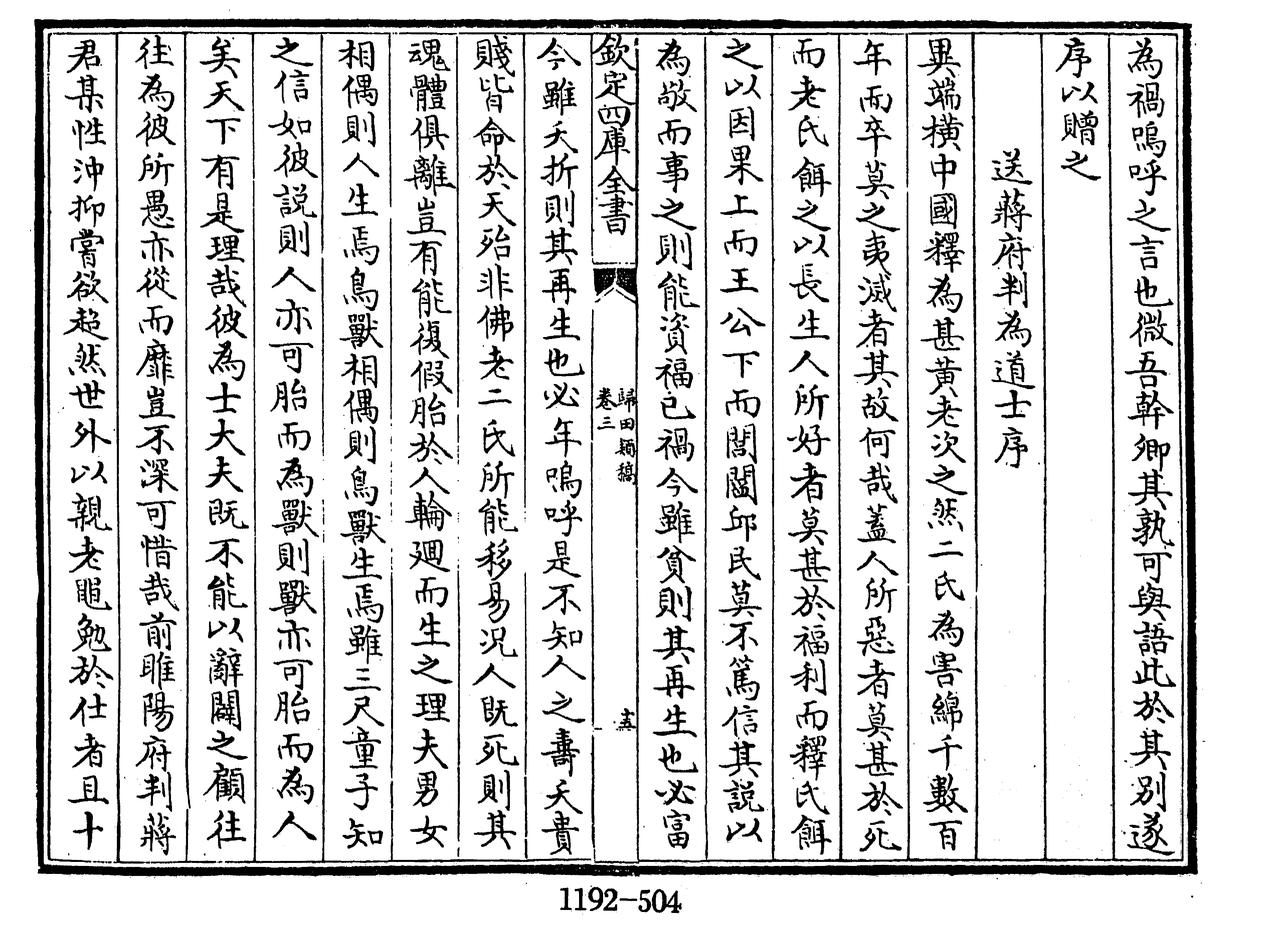 為禍嗚呼之言也微吾幹卿其孰可與語此於其别遂
序以贈之
送蔣府判為道士序
異端橫中國釋為甚黃老次之然二氏為害綿千數百
年而卒莫之夷滅者其故何哉蓋人所惡者莫甚於死
而老氏餌之以長生人所好者莫甚於福利而釋氏餌
之以因果上而王公下而閭閻邱民莫不篤信其説以
為敬而事之則能資福已禍今雖貧則其再生也必富
欽定四庫全書
歸田類稿
卷三
十五
今雖夭折則其再生也必年嗚呼是不知人之壽夭貴
賤皆命於天殆非佛老二氏所能移易况人既死則其
魂體俱離豈有能復假胎於人輪廻而生之理夫男女
相偶則人生焉鳥獸相偶則鳥獸生焉雖三尺童子知
之信如彼説則人亦可胎而為獸則獸亦可胎而為人
矣天下有是理哉彼為士大夫既不能以辭闢之顧往
往為彼所愚亦從而靡豈不深可惜哉前睢陽府判蔣
君某性沖抑嘗欲超然世外以親老黽勉於仕者且十
1192-504